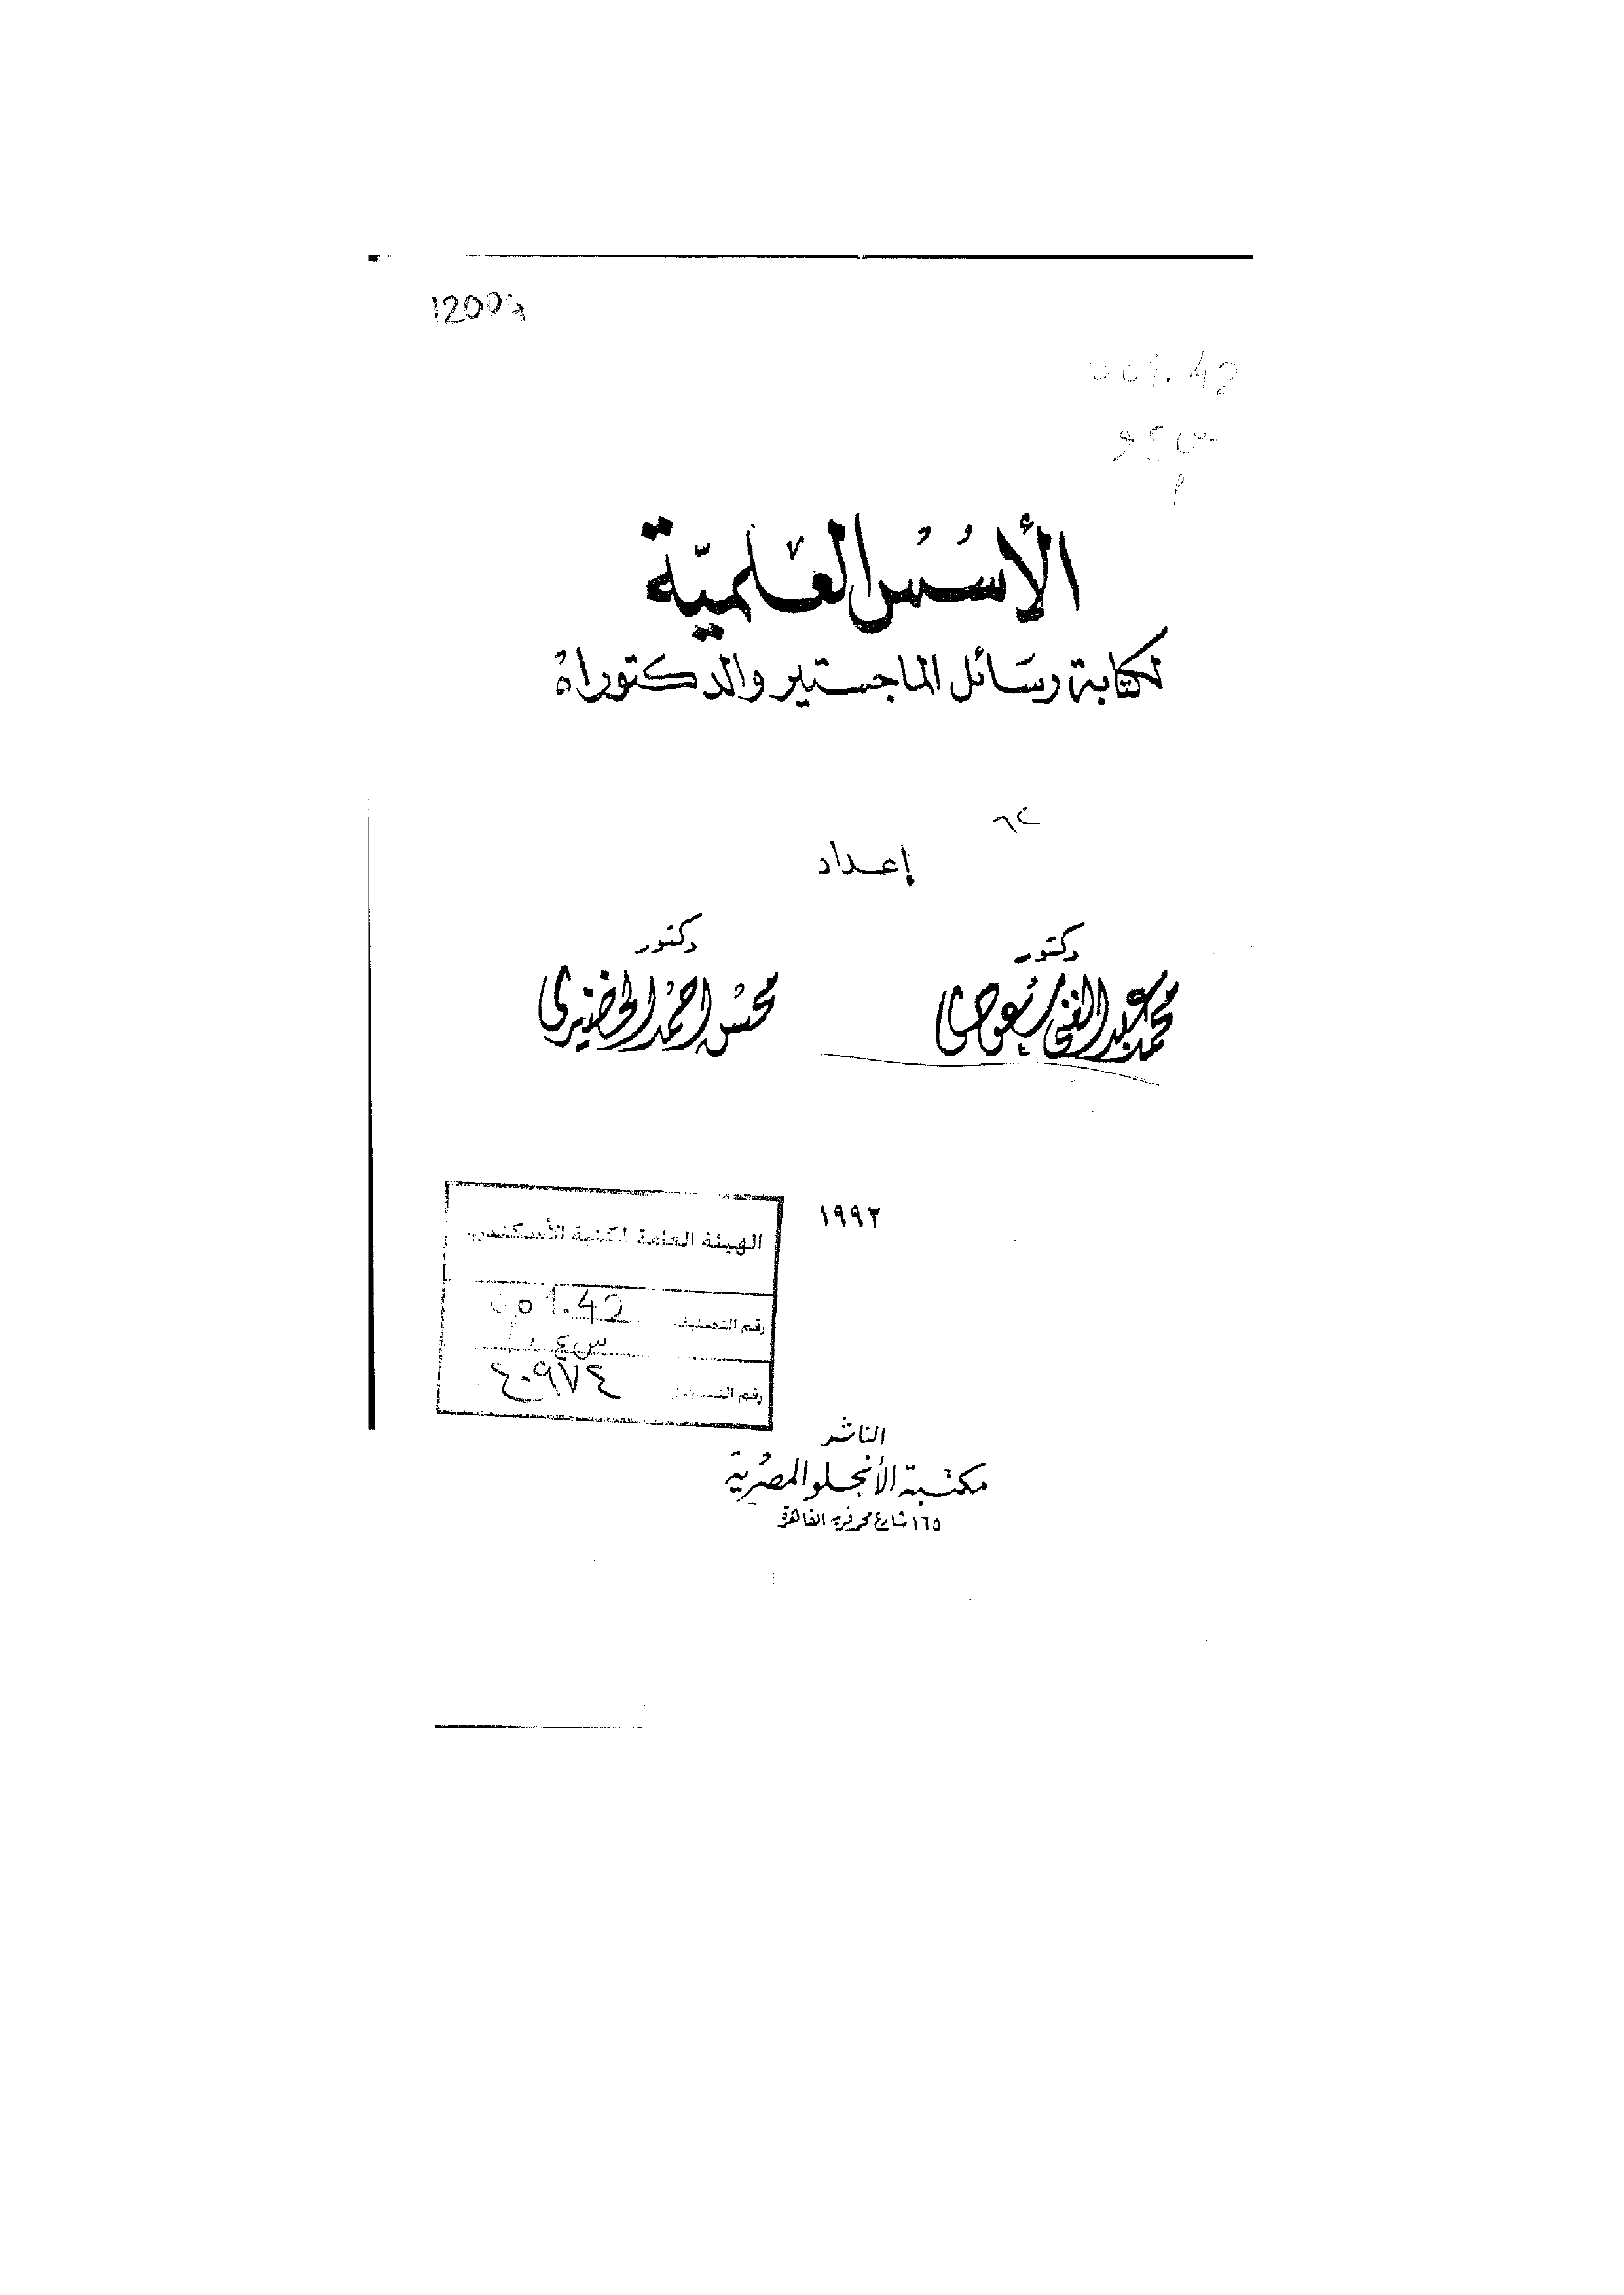 12009
001.42
س ع و
م
الأسُسُ العِلميّة
لكتابة رسَائل الماجستير والدكتوراهُ
إعداد
دكتور
محمد عبد الغنى سعودى
دكتور
محسن احمد الخضيرى
١٩٩٢
الهيئة العامة لكتبة الأسكندرية
رقم التصنيف 001.42
س ع
رقم التسجيل ٤٠٩٧٤
الناشر
مكتبة الأنجلو المصرية
١٦٥ شارع محمد فريد القاهرة